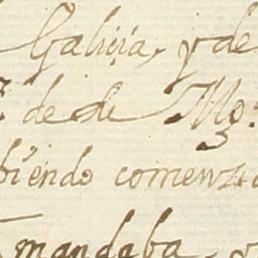 Galicia, y de
de su Mg.
biendo comenza
mandaba, y